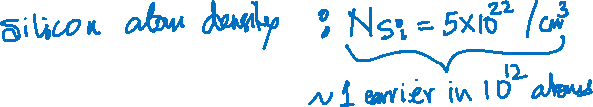 silicon atom density : N_Si = 5×10^22 /cm^3
~ 1 carrier in 10^12 atoms